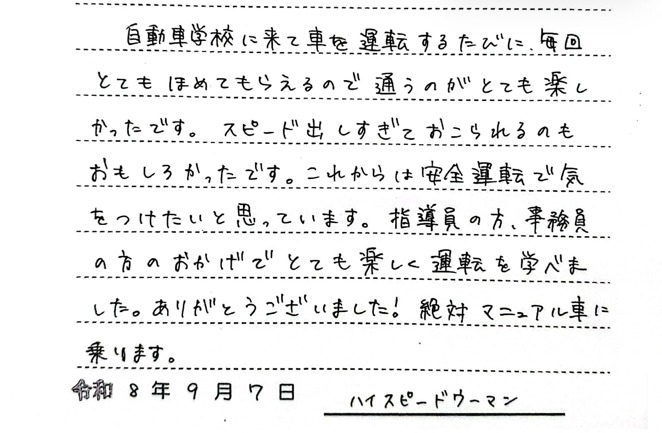 自動車学校に来て車を運転するたびに、毎回
とてもほめてもらえるので通うのがとても楽し
かったです。スピード出しすぎておこられるのも
おもしろかったです。これからは安全運転で気
をつけたいと思っています。指導員の方、事務員
の方のおかげでとても楽しく運転を学べま
した。ありがとうございました！絶対マニュアル車に
乗ります。
令和8年9月7日
ハイスピードウーマン